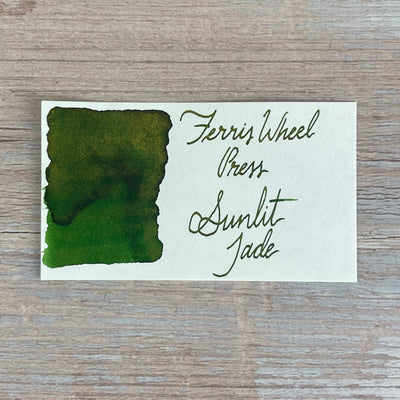 Ferris Wheel
Press
Sunlit
Jade